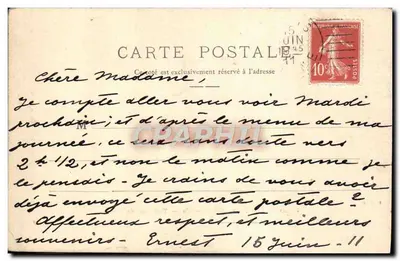 CARTE POSTALE
Ce côté est exclusivement réservé à l'adresse
Chère Madame,
Je compte aller vous voir Mardi
prochain; et d'après le menu de ma
journée, ce sera sans doute vers
2 h 1/2, et non le matin comme je
le pensais - Je crains de vous avoir
déjà envoyé cette carte postale?
Affectueux respects, et meilleurs
souvenirs - Ernest 15 Juin - 11
M
CPAPHIL
10c
POSTES
JUIN
11